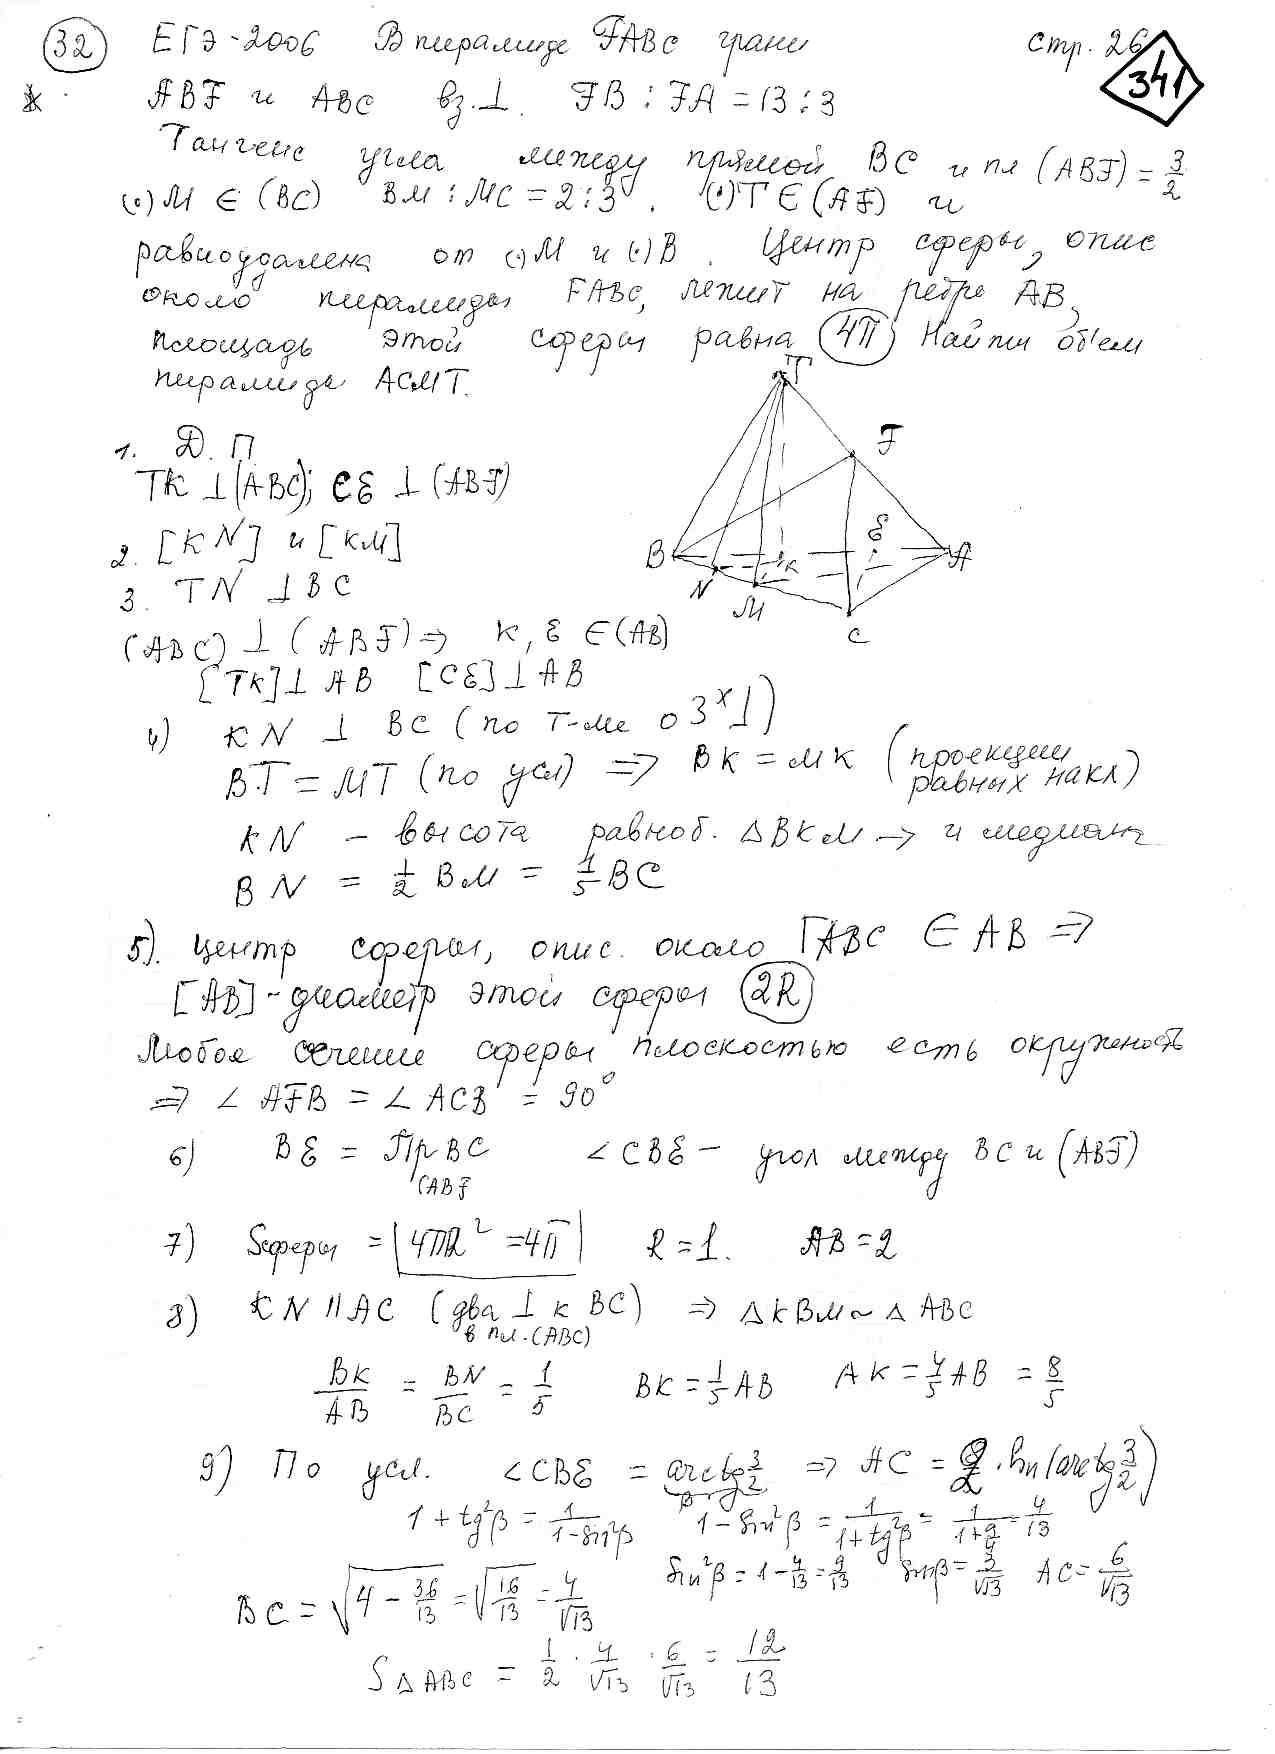 32 ЕГЭ-2006 В пирамиде FABC грани стр. 26 341
ABF и ABC вз.⊥. FB : FA = 13 : 3
Тангенс угла между прямой BC и пл (ABF) = 3/2
(•) M ∈ (BC) BM : MC = 2 : 3. (•) T ∈ (AF) и
равноудалена от (•) M и (•) B. Центр сферы, опис
около пирамиды FABC, лежит на ребре AB,
площадь этой сферы равна 4π Найти объем
пирамиды ACMT.
1. Д. П
TK ⊥ (ABC); CE ⊥ (ABF)
2. [KN] и [KM]
3. TN ⊥ BC
(ABC) ⊥ (ABF) ⇒ K, E ∈ (AB)
[TK] ⊥ AB [CE] ⊥ AB
T
F
B
E
A
K
N
M
C
4) KN ⊥ BC (по т-ме о 3х ⊥)
BT = MT (по усл) ⇒ BK = MK (проекции равных накл)
KN – высота равноб. ΔBKM → и медиана
BN = 1/2 BM = 1/5 BC
5). Центр сферы, опис. около FABC ∈ AB ⇒
[AB] - диаметр этой сферы 2R
Любое сечение сферы плоскостью есть окружность
⇒ ∠ AFB = ∠ ACB = 90°
6) BE = Пр BC (ABF ∠ CBE – угол между BC и (ABF)
7) Sсферы = 4πR² = 4π R = 1. AB = 2
8) KN || AC (два ⊥ к BC) ⇒ Δ KBM ~ Δ ABC
в пл. (ABC)
BK/AB = BN/BC = 1/5 BK = 1/5 AB AK = 4/5 AB = 8/5
9) По усл. ∠ CBE = arctg 3/2 ⇒ AC = 2 · sin (arctg 3/2)
β
1 + tg²β = 1/(1 - sin²β) 1 - sin²β = 1/(1 + tg²β) = 1/(1 + 9/4) = 4/13
sin²β = 1 - 4/13 = 9/13 sinβ = 3/√13 AC = 6/√13
BC = √(4 - 36/13) = √(16/13) = 4/√13
S Δ ABC = 1/2 · 4/√13 · 6/√13 = 12/13